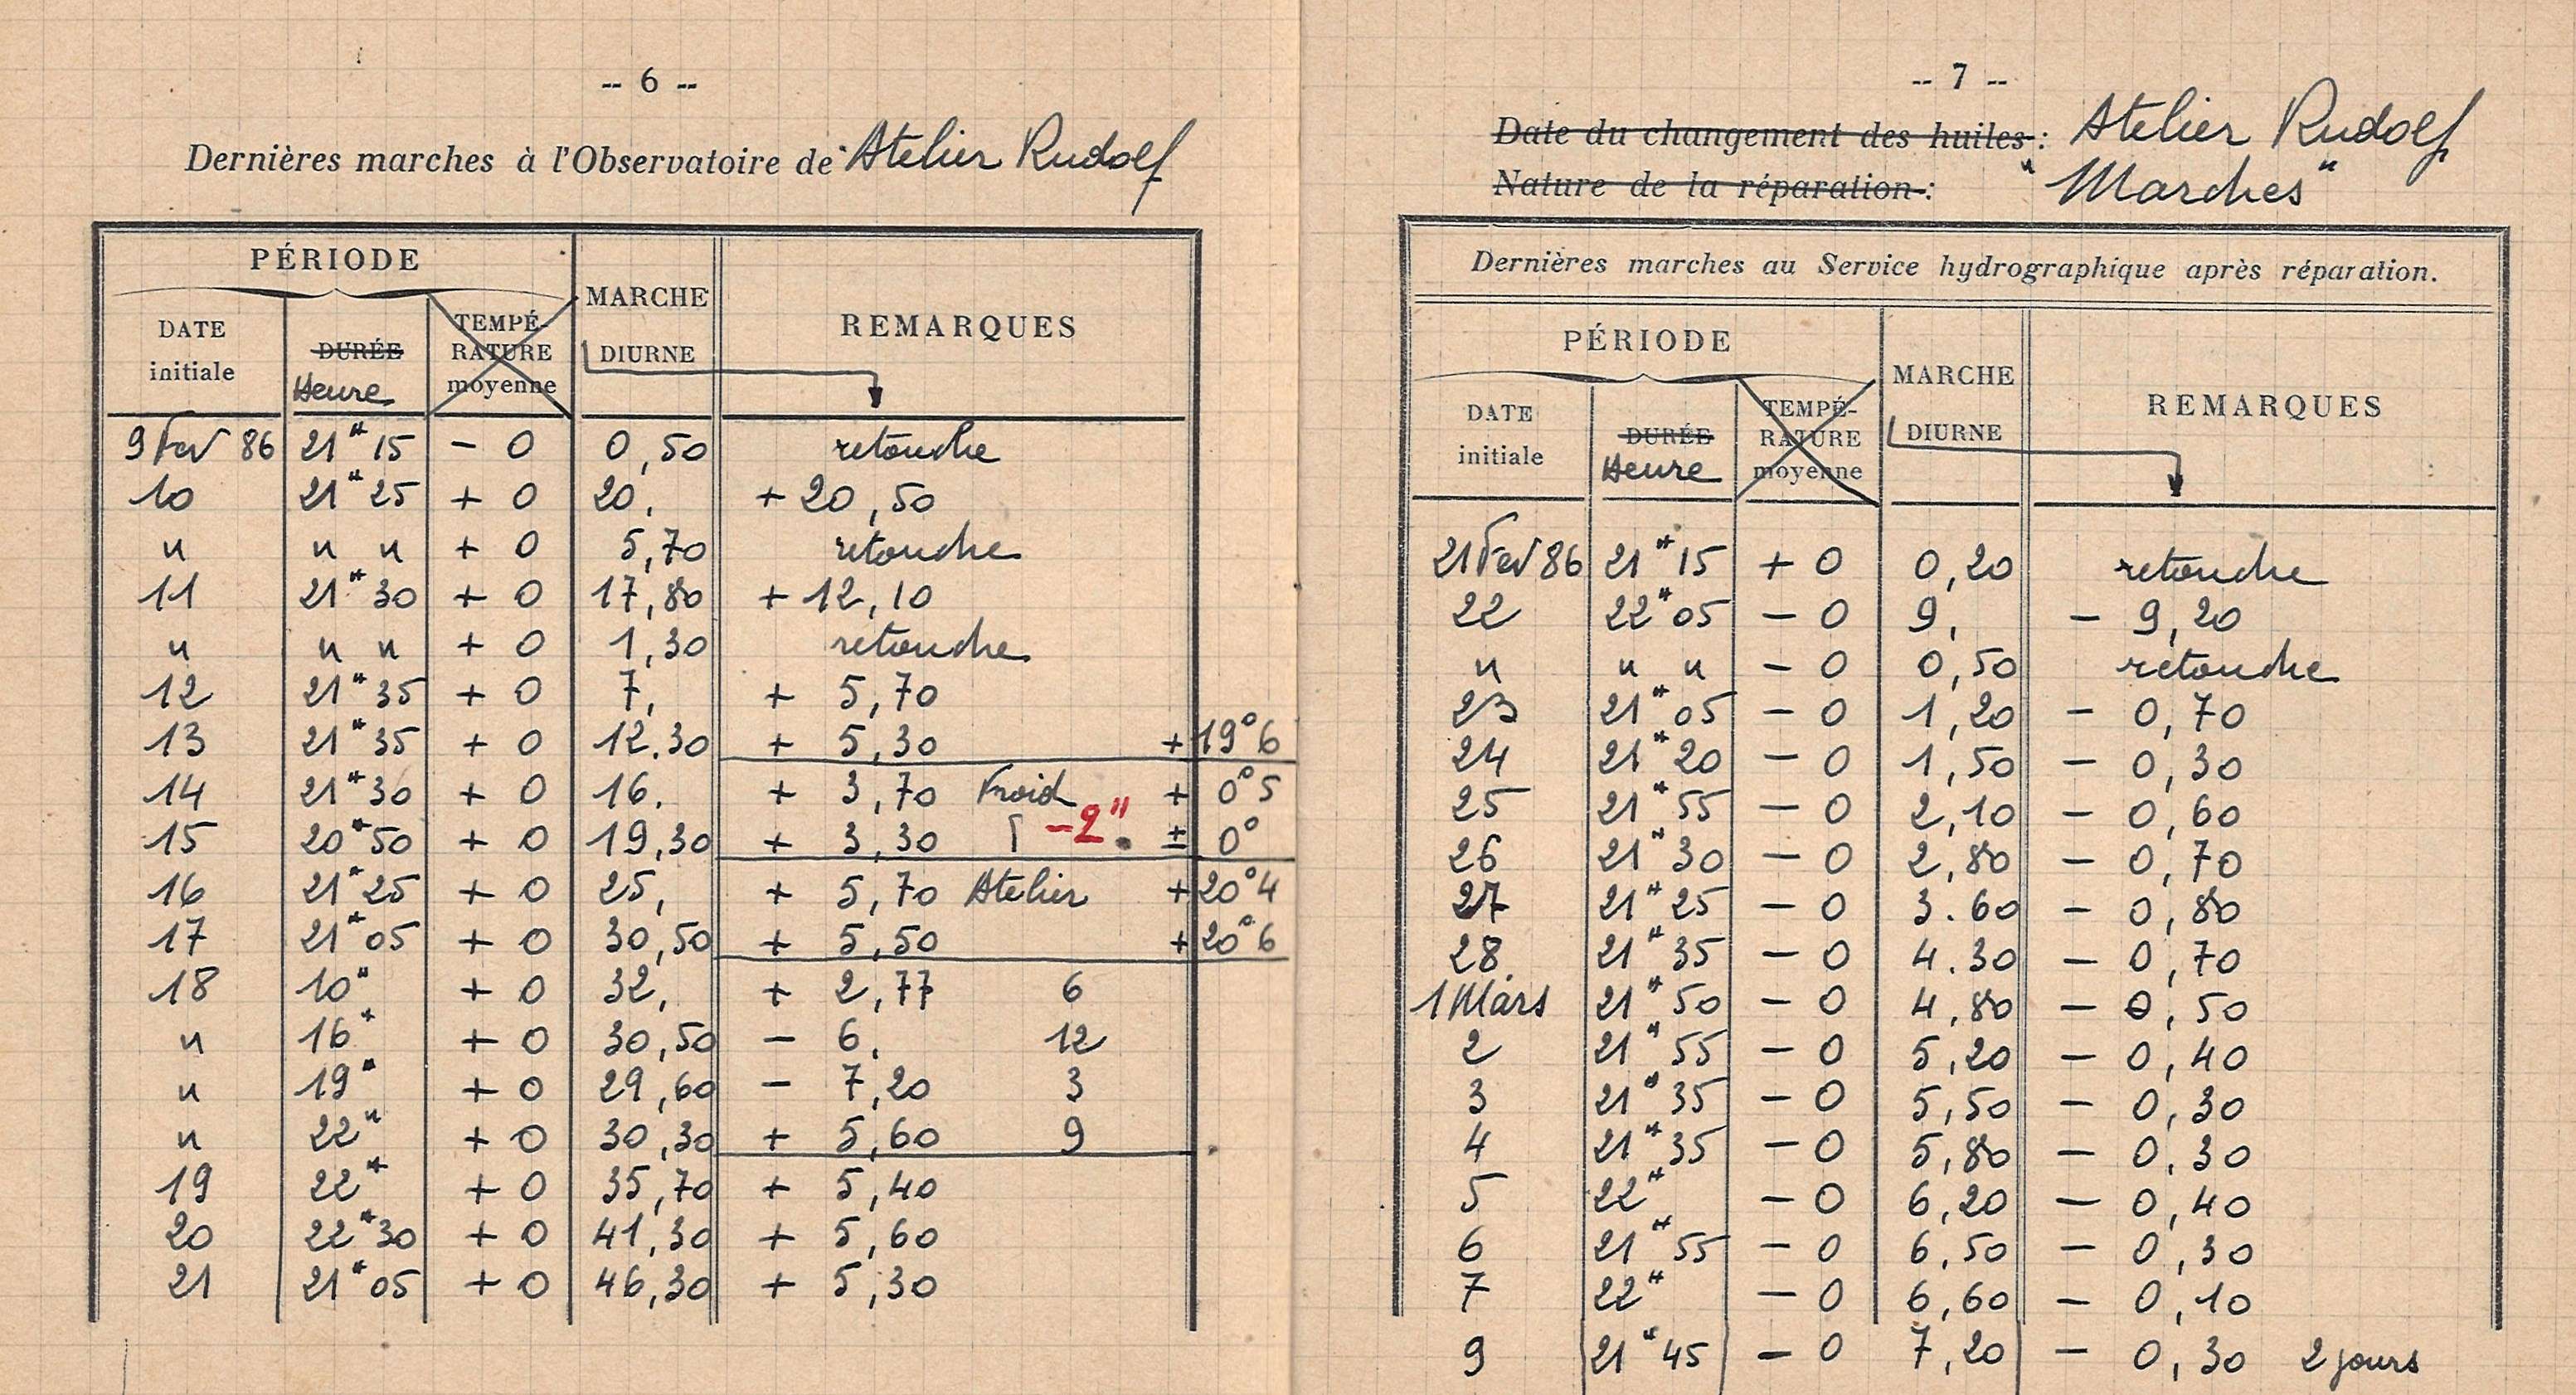 -- 6 --
Dernières marches à l'Observatoire de Atelier Rudolf
PÉRIODE
MARCHE
DIURNE
REMARQUES
DATE
initiale
DURÉE
Heure
TEMPÉ-
RATURE
moyenne
9 Fev 86 21 H 15 - 0 0,50 retouche
10 21 H 25 + 0 20, + 20,50
" " " + 0 5,70 retouche
11 21 H 30 + 0 17,80 + 12,10
" " " + 0 1,30 retouche
12 21 H 35 + 0 7, + 5,70
13 21 H 35 + 0 12.30 + 5,30 + 19°6
14 21 H 30 + 0 16. + 3,70 Froid + 0°5
15 20 H 50 + 0 19,30 + 3,30 -2" ± 0°
16 21 H 25 + 0 25, + 5,70 Atelier + 20°4
17 21 H 05 + 0 30,50 + 5,50 + 20°6
18 10 H + 0 32, + 2,77 6
" 16 H + 0 30,50 - 6. 12
" 19 H + 0 29,60 - 7,20 3
" 22 H + 0 30,30 + 5,60 9
19 22 H + 0 35,70 + 5,40
20 22 H 30 + 0 41,30 + 5,60
21 21 H 05 + 0 46,30 + 5,30
-- 7 --
Date du changement des huiles : Atelier Rudolf
Nature de la réparation : "Marches"
Dernières marches au Service hydrographique après réparation.
PÉRIODE
MARCHE
DIURNE
REMARQUES
DATE
initiale
DURÉE
Heure
TEMPÉ-
RATURE
moyenne
21 Fev 86 21 H 15 + 0 0,20 retouche
22 22 H 05 - 0 9, - 9,20
" " " - 0 0,50 retouche
23 21 H 05 - 0 1,20 - 0,70
24 21 H 20 - 0 1,50 - 0,30
25 21 H 55 - 0 2,10 - 0,60
26 21 H 30 - 0 2,80 - 0,70
27 21 H 25 - 0 3.60 - 0,80
28. 21 H 35 - 0 4.30 - 0,70
1 Mars 21 H 50 - 0 4,80 - 0,50
2 21 H 55 - 0 5,20 - 0,40
3 21 H 35 - 0 5,50 - 0,30
4 21 H 35 - 0 5,80 - 0.30
5 22 H - 0 6,20 - 0,40
6 21 H 55 - 0 6,50 - 0,30
7 22 H - 0 6,60 - 0,10
9 21 H 45 - 0 7,20 - 0,30 2 jours